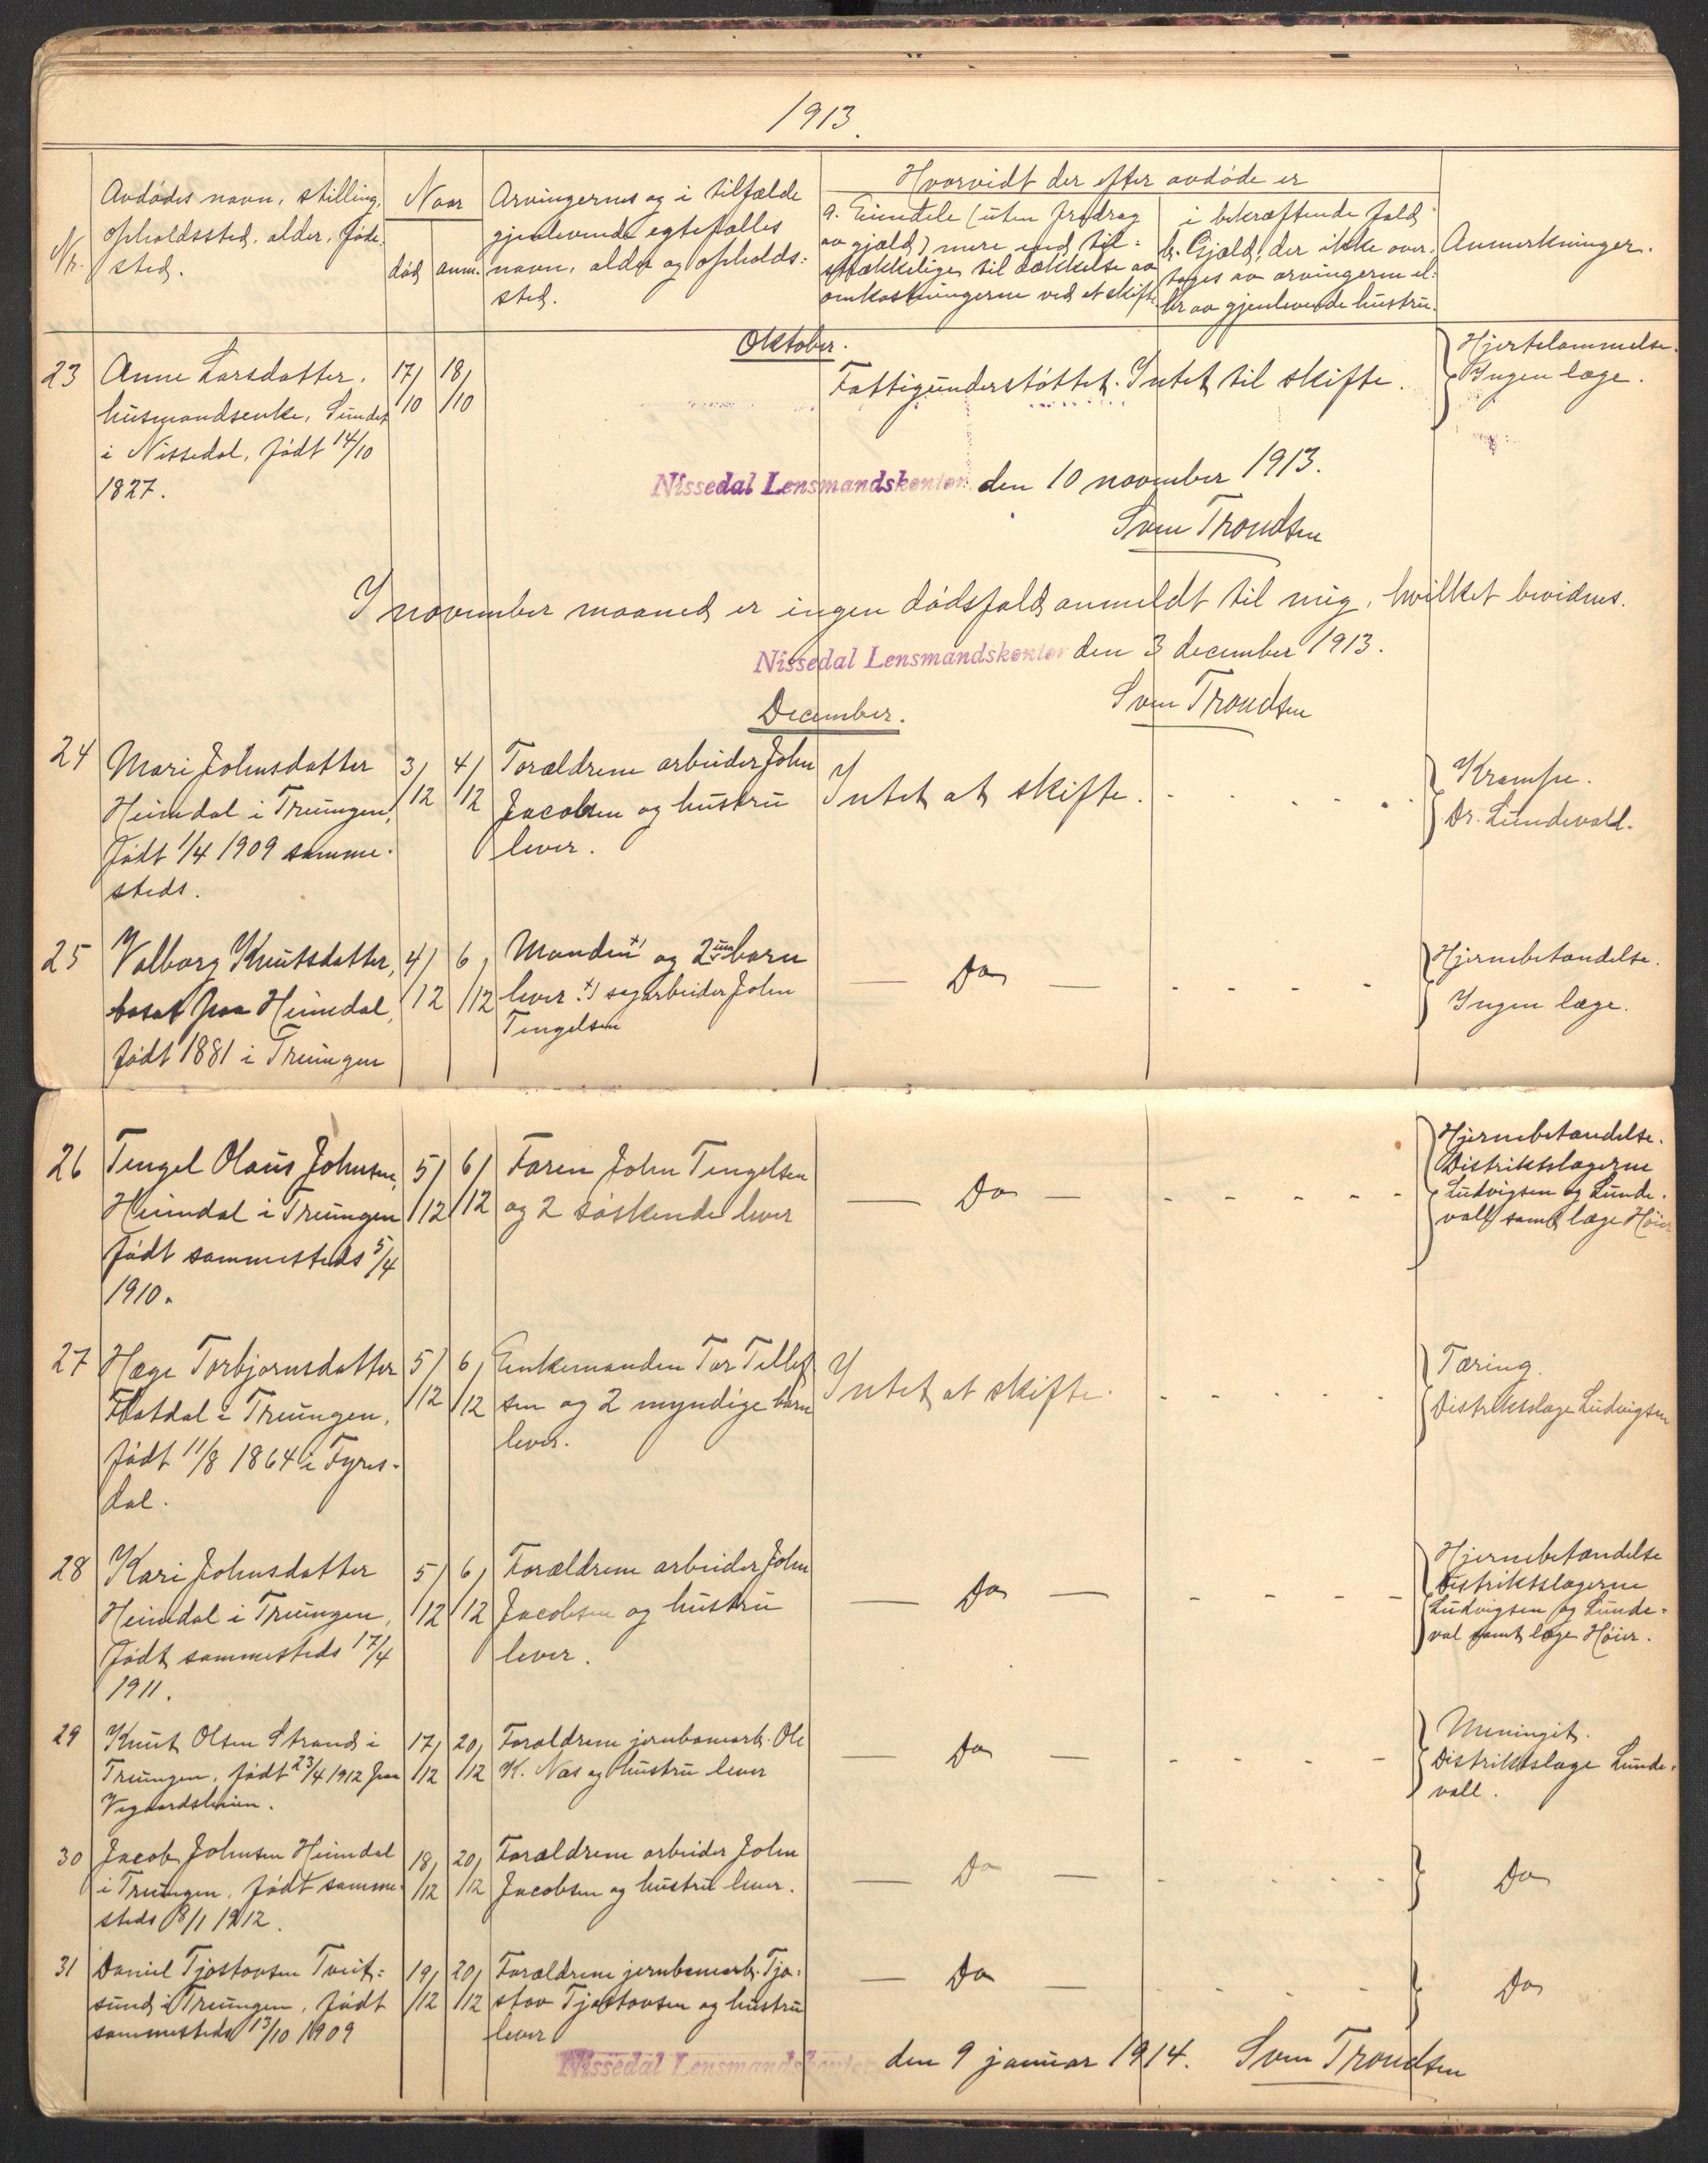 1913.
Nr.
Avdødes navn, stilling,
opholdssted, alder, føde-
sted.
Naar
død
anm.
Arvingernes og i tilfælde
gjenlevende egtefælles
navn, alder og opholds-
sted.
Hvorvidt der efter avdøde er
a. Eiendele (uten fradrag
av gjæld) mere end til-
strækkelige til dækkelse av
omkostningerne ved et skifte
i bekræftende fald
b. Gjæld, der ikke over-
tages av arvingerne el-
ler av gjenlevende hustru.
Anmerkninger.
Oktober.
23
Anne Larsdatter,
husmandsenke, Sundet
i Nissedal, født 14/10
1827.
17/10
18/10
Fattigunderstøttet. Intet til skifte.
Hjertelammelse.
Ingen læge.
Nissedal Lensmandskontor den 10 november 1913.
Sven Trondsen
I november maaned er ingen dødsfald anmeldt til mig, hvilket bevidnes.
Nissedal Lensmandskontor den 3 december 1913.
Sven Trondsen
December.
24
Mari Johnsdatter
Heimdal i Treungen,
født 1/4 1909 samme-
steds.
3/12
4/12
Forældrene arbeider John
Jacobsen og hustru
lever.
Intet at skifte. - - - - -
Krampe.
Dr. Lundevald.
25
Valborg Knutsdatter,
bosat paa Heimdal,
født 1881 i Treungen
4/12
6/12
Manden +) og 2 um barn
lever. +) sagarbeider John
Tengelsen
— Do — - - - -
Hjernebetændelse.
Ingen læge.
26
Tengel Olaus Johnsen,
Heimdal i Treungen
født sammesteds 5/4
1910.
5/12
6/12
Faren John Tengelsen
og 2 søskende lever
— Do — - - - - -
Hjernebetændelse.
Distriktslægerne
Ludvigsen og Lunde-
vall samt læge Høier
27
Hæge Torbjørnsdatter
Flatdal i Treungen,
født 11/8 1864 i Fyres-
dal.
5/12
6/12
Enkemanden Tor Tellef
sen og 2 myndige barn
lever.
Intet at skifte. - - - -
Tæring.
Distriktslæge Ludvigsen
28
Kari Johnsdatter
Heimdal i Treungen,
født sammesteds 17/4
1911.
5/12
6/12
Forældrene arbeider John
Jacobsen og hustru
lever.
— Do — - - - -
Hjernebetændelse
Distriktslægerne
Ludvigsen og Lunde-
val samt læge Høier.
29
Knut Olsen Strand i
Treungen, født 23/4 1912 paa
Vegaardsheien.
17/12
20/12
Forældrene jernbanearb. Ole
K. Næs og hustru lever
— Do — - - - -
Meningit.
Distriktslæge Lunde-
vall.
30
Jacob Johnsen Heimdal
i Treungen, født samme-
steds 8/1 1912.
18/12
20/12
Forældrene arbeider John
Jacobsen og hustru lever.
— Do — - - - - -
Do
31
Daniel Tjøstovsen Tveit-
sund i Treungen, født
sammesteds 13/10 1909
19/12
20/12
Forældrene jernbanearb. Tjø-
stov Tjøstovsen og hustru
lever
— Do — - - - - -
Do
Nissedal Lensmandskontor den 9 januar 1914. Sven Trondsen